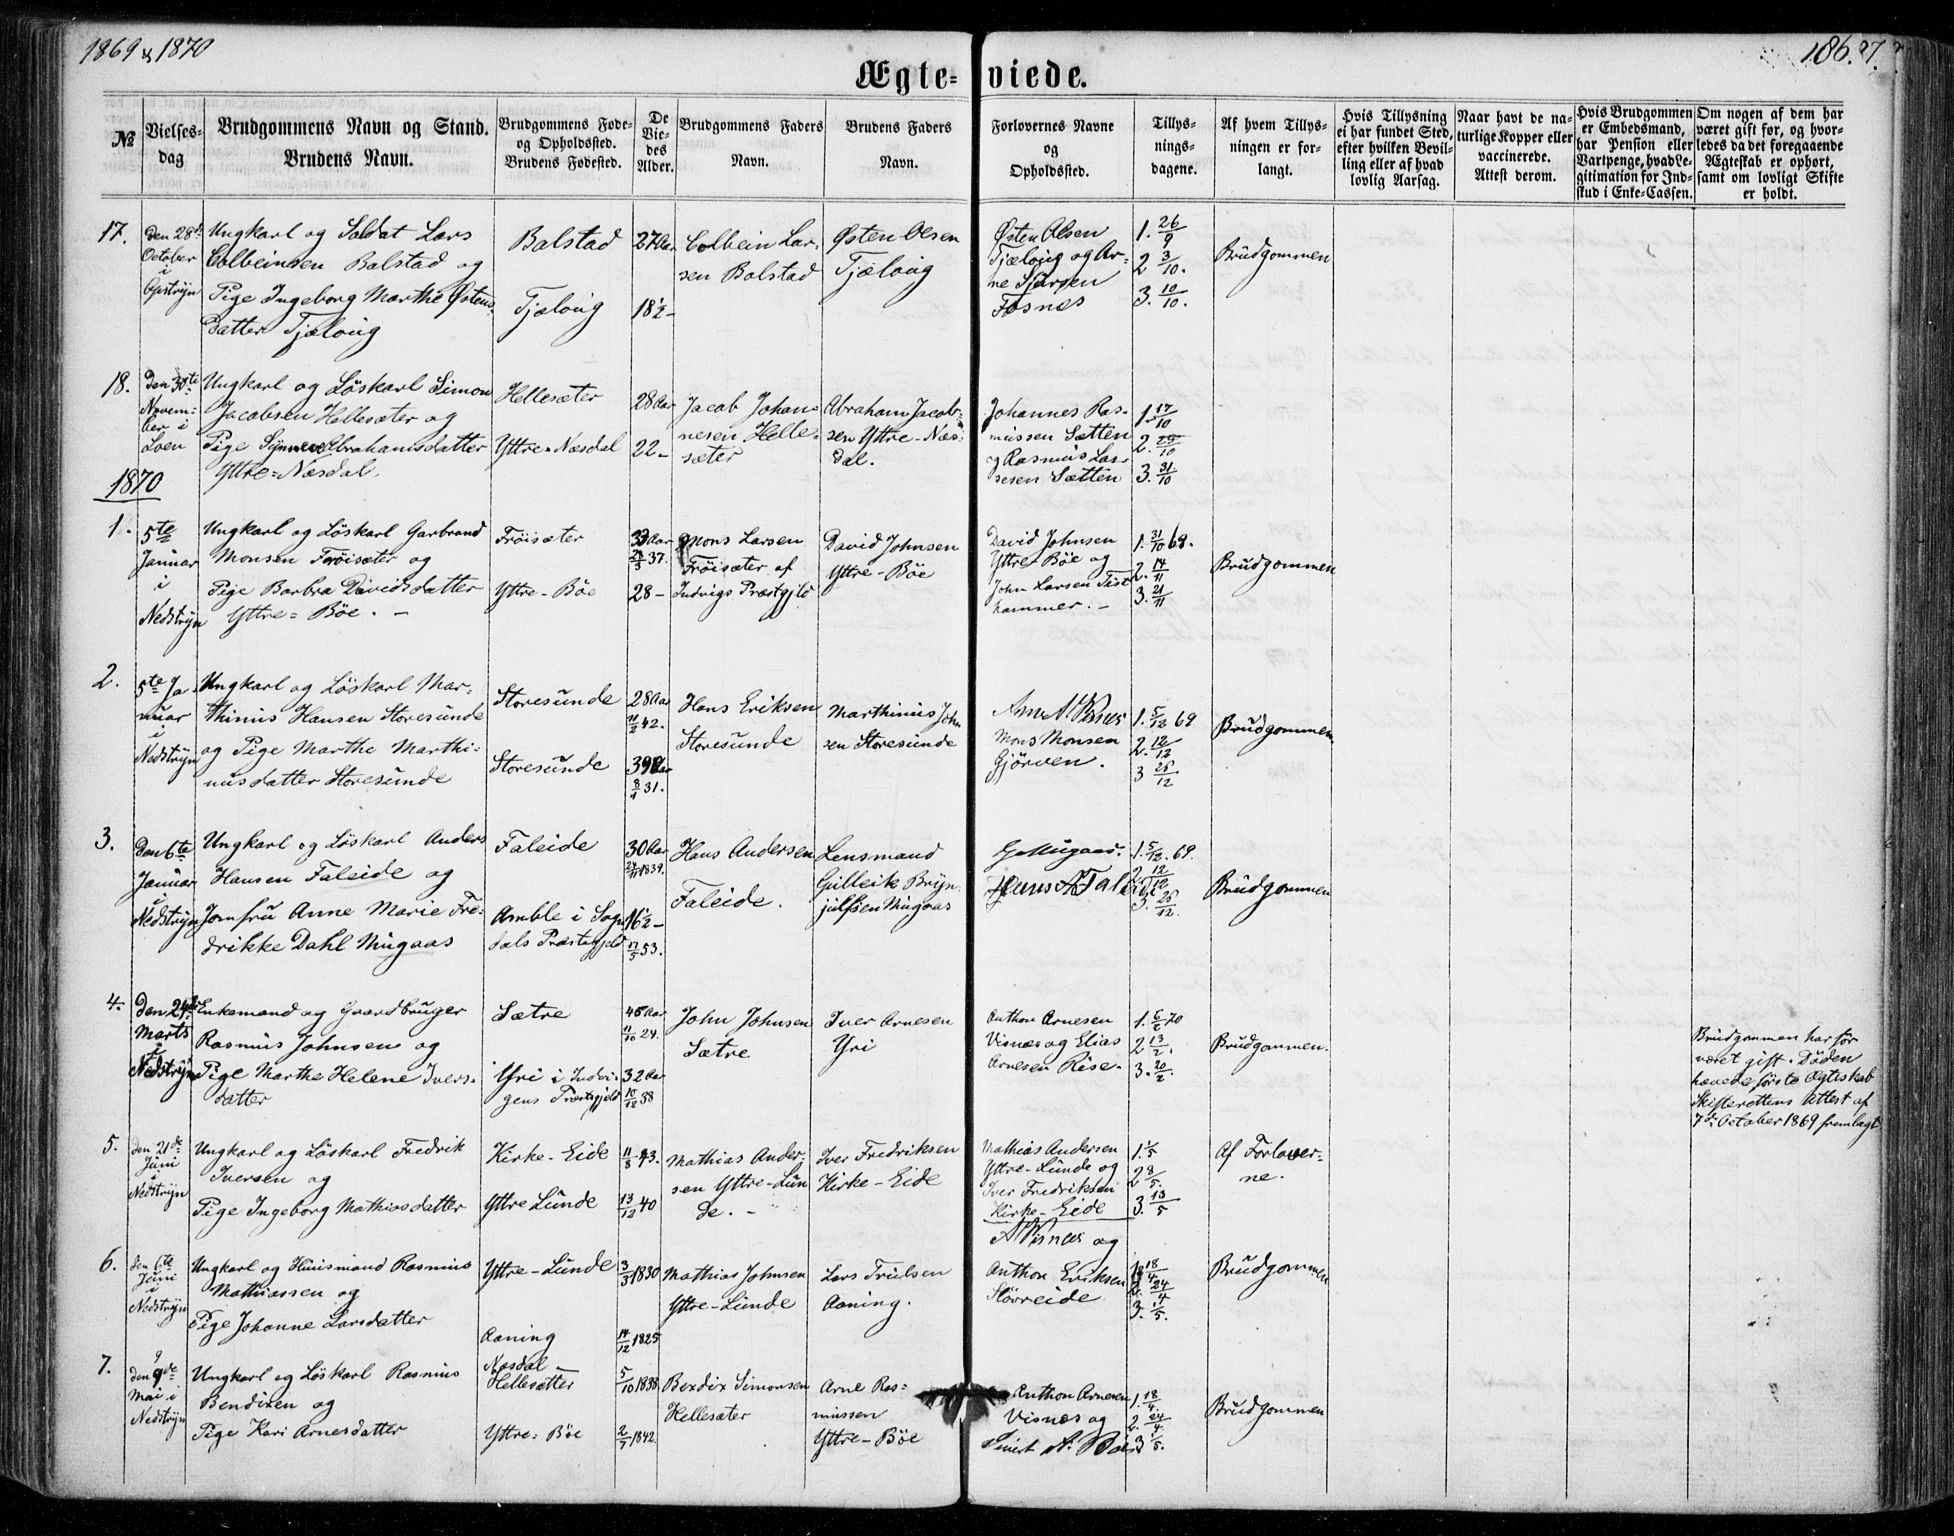 1869 & 1870
186.
Ægte=viede.
№
Vielses-
dag
Brudgommens Navn og Stand.
Brudens Navn.
Brudgommens Føde-
og Opholdssted.
Brudens Fødested.
De
Vie-
des
Alder.
Brudgommens Faders
Navn.
Brudens Faders
Navn.
Forlovernes Navne
og
Opholdssted.
Tillys-
nings-
dagene.
Af hvem Tillys-
ningen er for-
langt.
Hvis Tillysning
ei har fundet Sted,
efter hvilken Bevil-
ling eller af hvad
lovlig Aarsag.
Naar havt de na-
turlige Kopper eller
vaccinerede.
Attest derom.
Hvis Brudgommen
er Embedsmand,
har Pension eller
Vartpenge, hvad Le-
gitimation for Ind-
skud i Enke-Cassen.
Om nogen af dem har
været gift før, og hvor-
ledes da det foregaaende
Ægteskab er ophørt,
samt om lovligt Skifte
er holdt.
17.
Den 28de
October
i
Opstryn
Ungkarl og Soldat Lars
Colbeinsen Bolstad og
Pige Ingeborg Marthe Østens-
datter Tjeloug
Bolstad
Tjeloug
27 Aar
18½ –
Colbein Lar-
sen Bolstad
Østen Olsen
Tjeloug
Østen Olsen
Tjeloug og Ar-
ne Sjursen
Fosnes
1. 26/9
2 3/10.
3. 10/10.
Brudgommen
18.
Den 30te
Novem-
ber i
Loen
Ungkarl og Løskarl Simon
Jacobsen Hellesæter og
Pige Synneve Abrahamsdatter
Yttre=Næsdal.
Hellesæter
Yttre=Næsdal
28 Aar
22 –
Jacob Johan-
nesen Helle-
sæter
Abraham Jacob-
sen Yttre-Næs-
dal.
Johannes Ras-
mussen Sætten
og Rasmus Las-
sesen Sætten
1 17/10
2. 24/10
3. 31/10
1870
1.
5te
Januar
i
Nedstryn
Ungkarl og Løskarl Garbrand
Monsen Frøisæter og
Pige Barbra Davidsdatter
Yttre=Bøe. –
Frøisæter
Yttre-Bøe
33 Aar
37.
28 –
Mons Larsen
Frøisæter af
Indvigs Præstgjld
David Johnsen
Yttre-Bøe
David Johnsen
Yttre-Bøe og
John Larsen Tist-
hammer. –
1. 31/10 69.
2. 14/11
3. 21/11
Brudgommen
2.
5te Ja-
nuar
i
Nedstryn
Ungkarl og Løskarl Mar-
thinus Hansen Storesunde
og Pige Marthe Marthi-
nusdatter Storesunde
Storesunde
Storesunde
28 Aar
11/2 42.
39 Aar
8/1 31.
Hans Eriksen
Storesunde
Marthinus John
sen Storesunde
Mons Monsen
Gjørven.
1. 5/12 69
2. 12/12
3 26/12
Brudgommen
3.
Den 6te
Januar
i
Nedstryn
Ungkarl og Løskarl Anders
Hansen Faleide og
Jomfru Anne Marie Fre-
drikke Dahl Mugaas
Faleide
Amble i Sogn-
dals Præstegjeld
30 Aar
24/11 1839.
16½ –
17/5 53.
Hans Andersen
Faleide.
Lensmand
Gulleik Bryn-
julfsen Mugaas
G Mugaas.
Hans A Faleide
1. 5/12. 69.
2. 12/12
3. 26/12.
Brudgommen
4.
Den 24de
Marts
i
Nedstryn
Enkemand og Gaardbruger
Rasmus Johnsen og
Pige Marthe Helene Ivers-
datter
Sætre
Yri i Indvi-
gens Præstgjeld
45 Aar
11/10 24.
32 Aar
10/12 38
John Johnsen
Sætre
Iver Arnesen
Yri
Anthon Arnesen
Visnæs og Elias
Arnesen Rise.
1. 6/2 70
2 13/2.
3. 20/2.
Brudgommen.
Brudgommen har før
været gift. Døden
hævede første Ægteskab
Skifterettens Attest af
7de October 1869 fremlagt
5.
Den 21de
Juni
i
Nedstryn
Ungkarl og Løskarl Fredrik
Iversen og
Pige Ingeborg Mathiasdatter
Kirke-Eide
Yttre Lunde
11/8 43.
13/12 40
Mathias Ander-
sen Yttre-Lun
de. –
Iver Fredriksen
Kirke-Eide
Mathias Andersen
Yttre-Lunde og
Iver Fredriksen
Kirke-Eide
1 1/5
2 8/5.
3. 15/5
Af Forlover-
ne.
6.
den 6te
Juni
i
Nedstryn
Ungkarl og Huusmand Rasmus
Mathiassen og
Pige Johanne Larsdatter
Yttre-Lunde
Aaning
3/3 1830
14/12 1825
Mathias Johnsen
Yttre-Lunde
Lars Trulsen
Aaning.
A Visnæs og
Anthon Eriksen
Støvreide
1. 18/4
2. 24/4
3. 1/5.
Brudgommen
7.
den 9de
Mai i
Nedstryn
Ungkarl og Løskarl Rasmus
Bendixen og
Pige Kari Arnesdatter
Næsdal
Hellesætter
Yttre=Bøe
5/10 1838
2/7 1842.
Bendix Simonsen
Hellesæter
Arne Ras=
mussen
Yttre-Bøe
Anthon Arnesen
Visnæs og
Sivert A. Bøe
1. 18/4.
2. 24/4
3 1/5.
Brudgommen